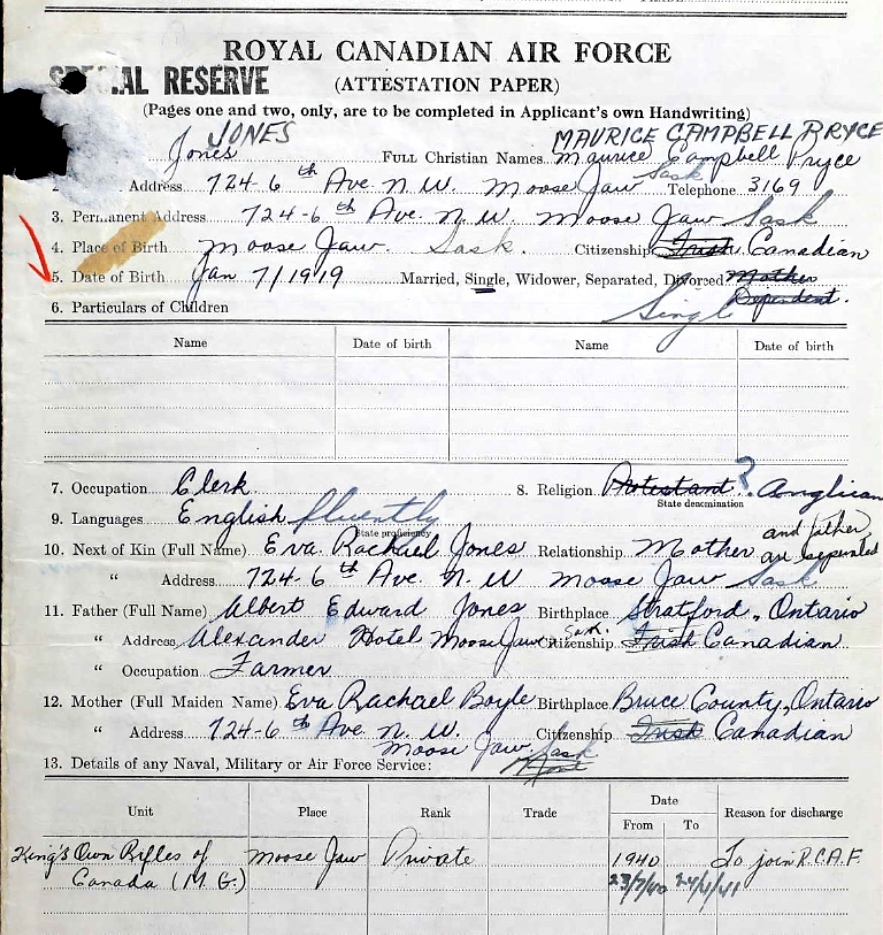 ROYAL CANADIAN AIR FORCE
RESERVE
(ATTESTATION PAPER)
(Pages one and two, only, are to be completed in Applicant's own Handwriting)
JONES MAURICE CAMPBELL BRYCE
Jones FULL Christian Names Maurice Campbell Pryce
Address 724-6th Ave N.W. Moose Jaw Sask Telephone 3169
3. Permanent Address 724-6th Ave. N.W. Moose Jaw Sask
4. Place of Birth Moose Jaw. Sask. Citizenship Irish Canadian
5. Date of Birth Jan 7/1919 Married, Single, Widower, Separated, Divorced Mother
Dependent.
6. Particulars of Children Single
Name Date of birth Name Date of birth
7. Occupation Clerk 8. Religion Protestant ? Anglican
State denomination
9. Languages English fluently
State proficiency
and father
10. Next of Kin (Full Name) Eva Rachael Jones Relationship Mother are separated
" Address 724-6th Ave. N.W Moose Jaw Sask
11. Father (Full Name) Albert Edward Jones Birthplace Stratford, Ontario
" Address Alexander Hotel Moose Jaw Sask. Citizenship Irish Canadian
" Occupation Farmer
12. Mother (Full Maiden Name) Eva Rachael Boyle Birthplace Bruce County, Ontario
" Address 724-6th Ave N.W. Citizenship Irish Canadian
Moose Jaw. Sask
13. Details of any Naval, Military or Air Force Service:
Unit Place Rank Trade Date Reason for discharge
From To
King's Own Rifles of Moose Jaw Private 1940 To join R.C.A.F.
Canada (M.G.) 23/7/40 24/1/41